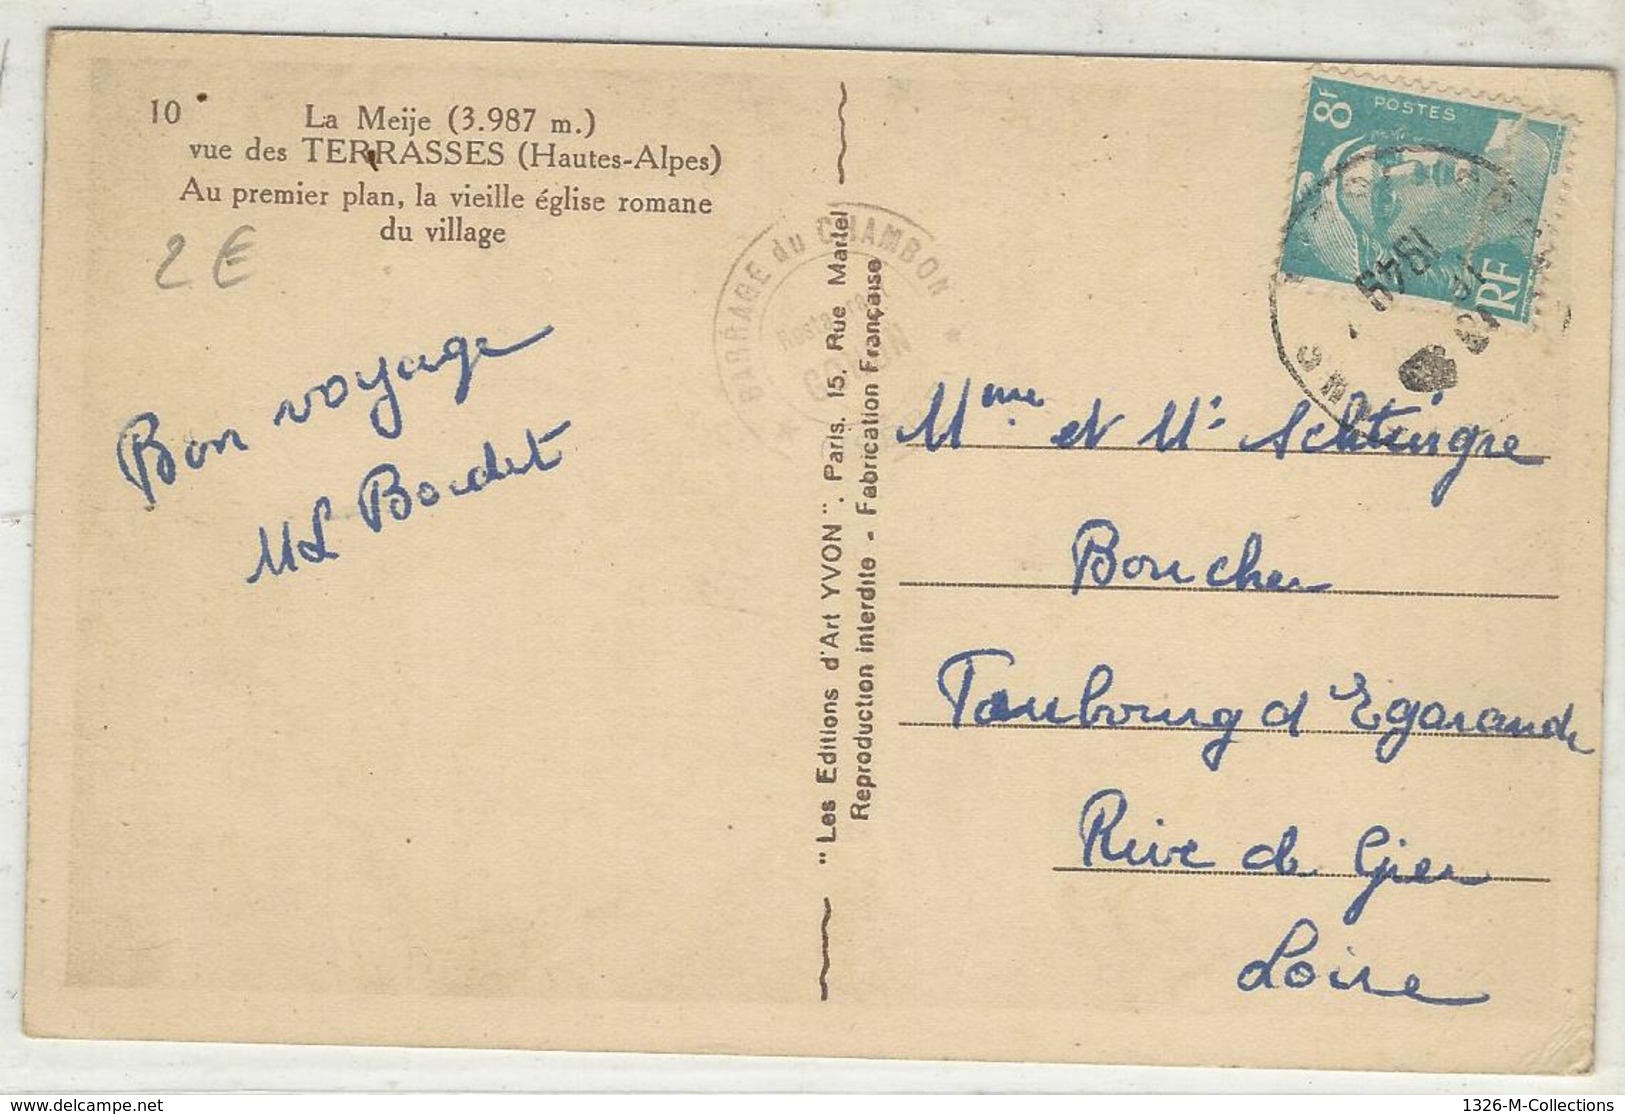 10 La Meije (3.987 m.)
vue des TERRASSES (Hautes-Alpes)
Au premier plan, la vieille église romane
du village
2 €
Bon voyage
ML Bordet
BARRAGE du CHAMBON
"Les Editions d'Art YVON". Paris, 15, Rue Martel
Reproduction interdite - Fabrication Française
8F POSTES
RF
1949
Mme et Mr
Boucher
Faubourg d'Egarande
Rive de Gier
Loire
www.delcampe.net
1326-M-Collections